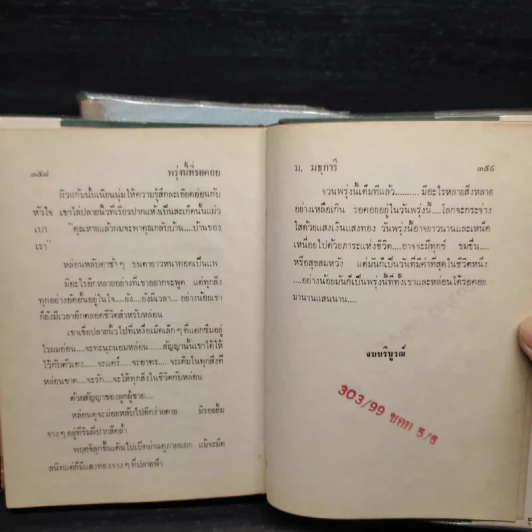 ๓๕๗ พรุ่งนี้ที่รอคอย
ผิวแก้มนั้นเนียนนุ่มให้ความรู้สึกละเอียดอ่อนกับ
หัวใจ เขาไล่ปลายนิ้วที่เรียวปากแห้งเป็นสะเก็ดนั้นแผ่ว
เบา "คุณหายแล้วผมจะพาคุณกลับบ้าน....บ้านของ
เรา"
หล่อนหลับตาช้า ๆ ขนตายาวหนาทอดเป็นแพ
มีอะไรอีกหลายอย่างที่เขาอยากจะพูด แต่ทุกสิ่ง
ทุกอย่างอัดอั้นอยู่ในใจ....ยัง....ยังมีเวลา.... อย่างน้อยเขา
ก็ยังมีเวลาอีกตลอดชีวิตสำหรับหล่อน
เขาเขี่ยปลายนิ้วไปที่เหงื่อเม็ดเล็กๆ ที่แตกซึมอยู่
ไรผมอ่อน....จะทะนุถนอมหล่อน.....สัญญานั้นเขาได้ให้
ไว้กับตัวเอง....จะแคร์....จะอาทร....จะเติมในทุกสิ่งที่
หล่อนขาด....จะรัก....จะให้ทุกสิ่งในชีวิตกับหล่อน
ด้วยสัญญาของลูกผู้ชาย....
หล่อนดูจะม่อยหลับไปอีกง่ายดาย มีรอยยิ้ม
จางๆ อยู่ที่ริมฝีปากสีคล้ำ
พฤษจิลุกขึ้นเดินไปเปิดม่านดูภายนอก แม้จะมืด
สนิทแต่ก็มีแสงทองจางๆ ที่ปลายฟ้า
ม. มธุการี ๓๕๘
จวนพรุ่งนี้เต็มทีแล้ว.......... มีอะไรหลายสิ่งหลาย
อย่างเหลือเกิน รอคอยอยู่ในวันพรุ่งนี้.....โลกจะกระจ่าง
ใสด้วยแสงเงินแสงทอง วันพรุ่งนี้อาจยาวนานและเหน็ด
เหนื่อยไปด้วยภาระแห่งชีวิต....อาจจะมีทุกข์ ขมขื่น....
หรือสุขสมหวัง แต่มันก็เป็นวันที่มีค่าที่สุดในชีวิตหนึ่ง
....อย่างน้อยมันก็เป็นพรุ่งนี้ที่ทั้งเขาและหล่อนได้รอคอย
มานานแสนนาน....
จบบริบูรณ์
303/99 ซอย 5/5